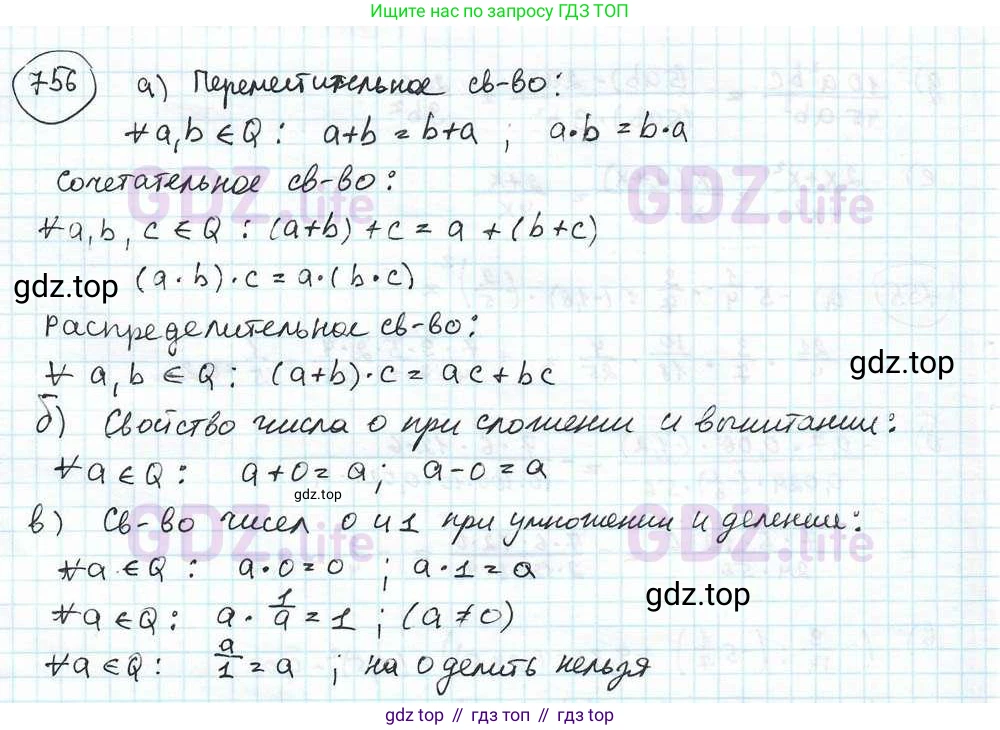 Ищите нас по запросу ГДЗ ТОП
756 а) Переместительное св-во:
∀ a, b ∈ Q : a+b = b+a ; a·b = b·a
Сочетательное св-во:
∀ a, b, c ∈ Q : (a+b)+c = a+(b+c)
gdz.top (a·b)·c = a·(b·c)
Распределительное св-во:
∀ a, b ∈ Q : (a+b)·c = ac+bc
gdz.top
б) Свойство числа 0 при сложении и вычитании:
∀ a ∈ Q : a+0 = a; a-0 = a
gdz.top
в) Св-во чисел 0 и 1 при умножении и делении:
∀ a ∈ Q : a·0=0 ; a·1=a
gdz.top
∀ a ∈ Q : a·1/a = 1 ; (a≠0)
∀ a ∈ Q : a/1 = a ; на 0 делить нельзя
GDZ.life
GDZ.life
GDZ.life
GDZ.life
gdz top // гдз топ // gdz top